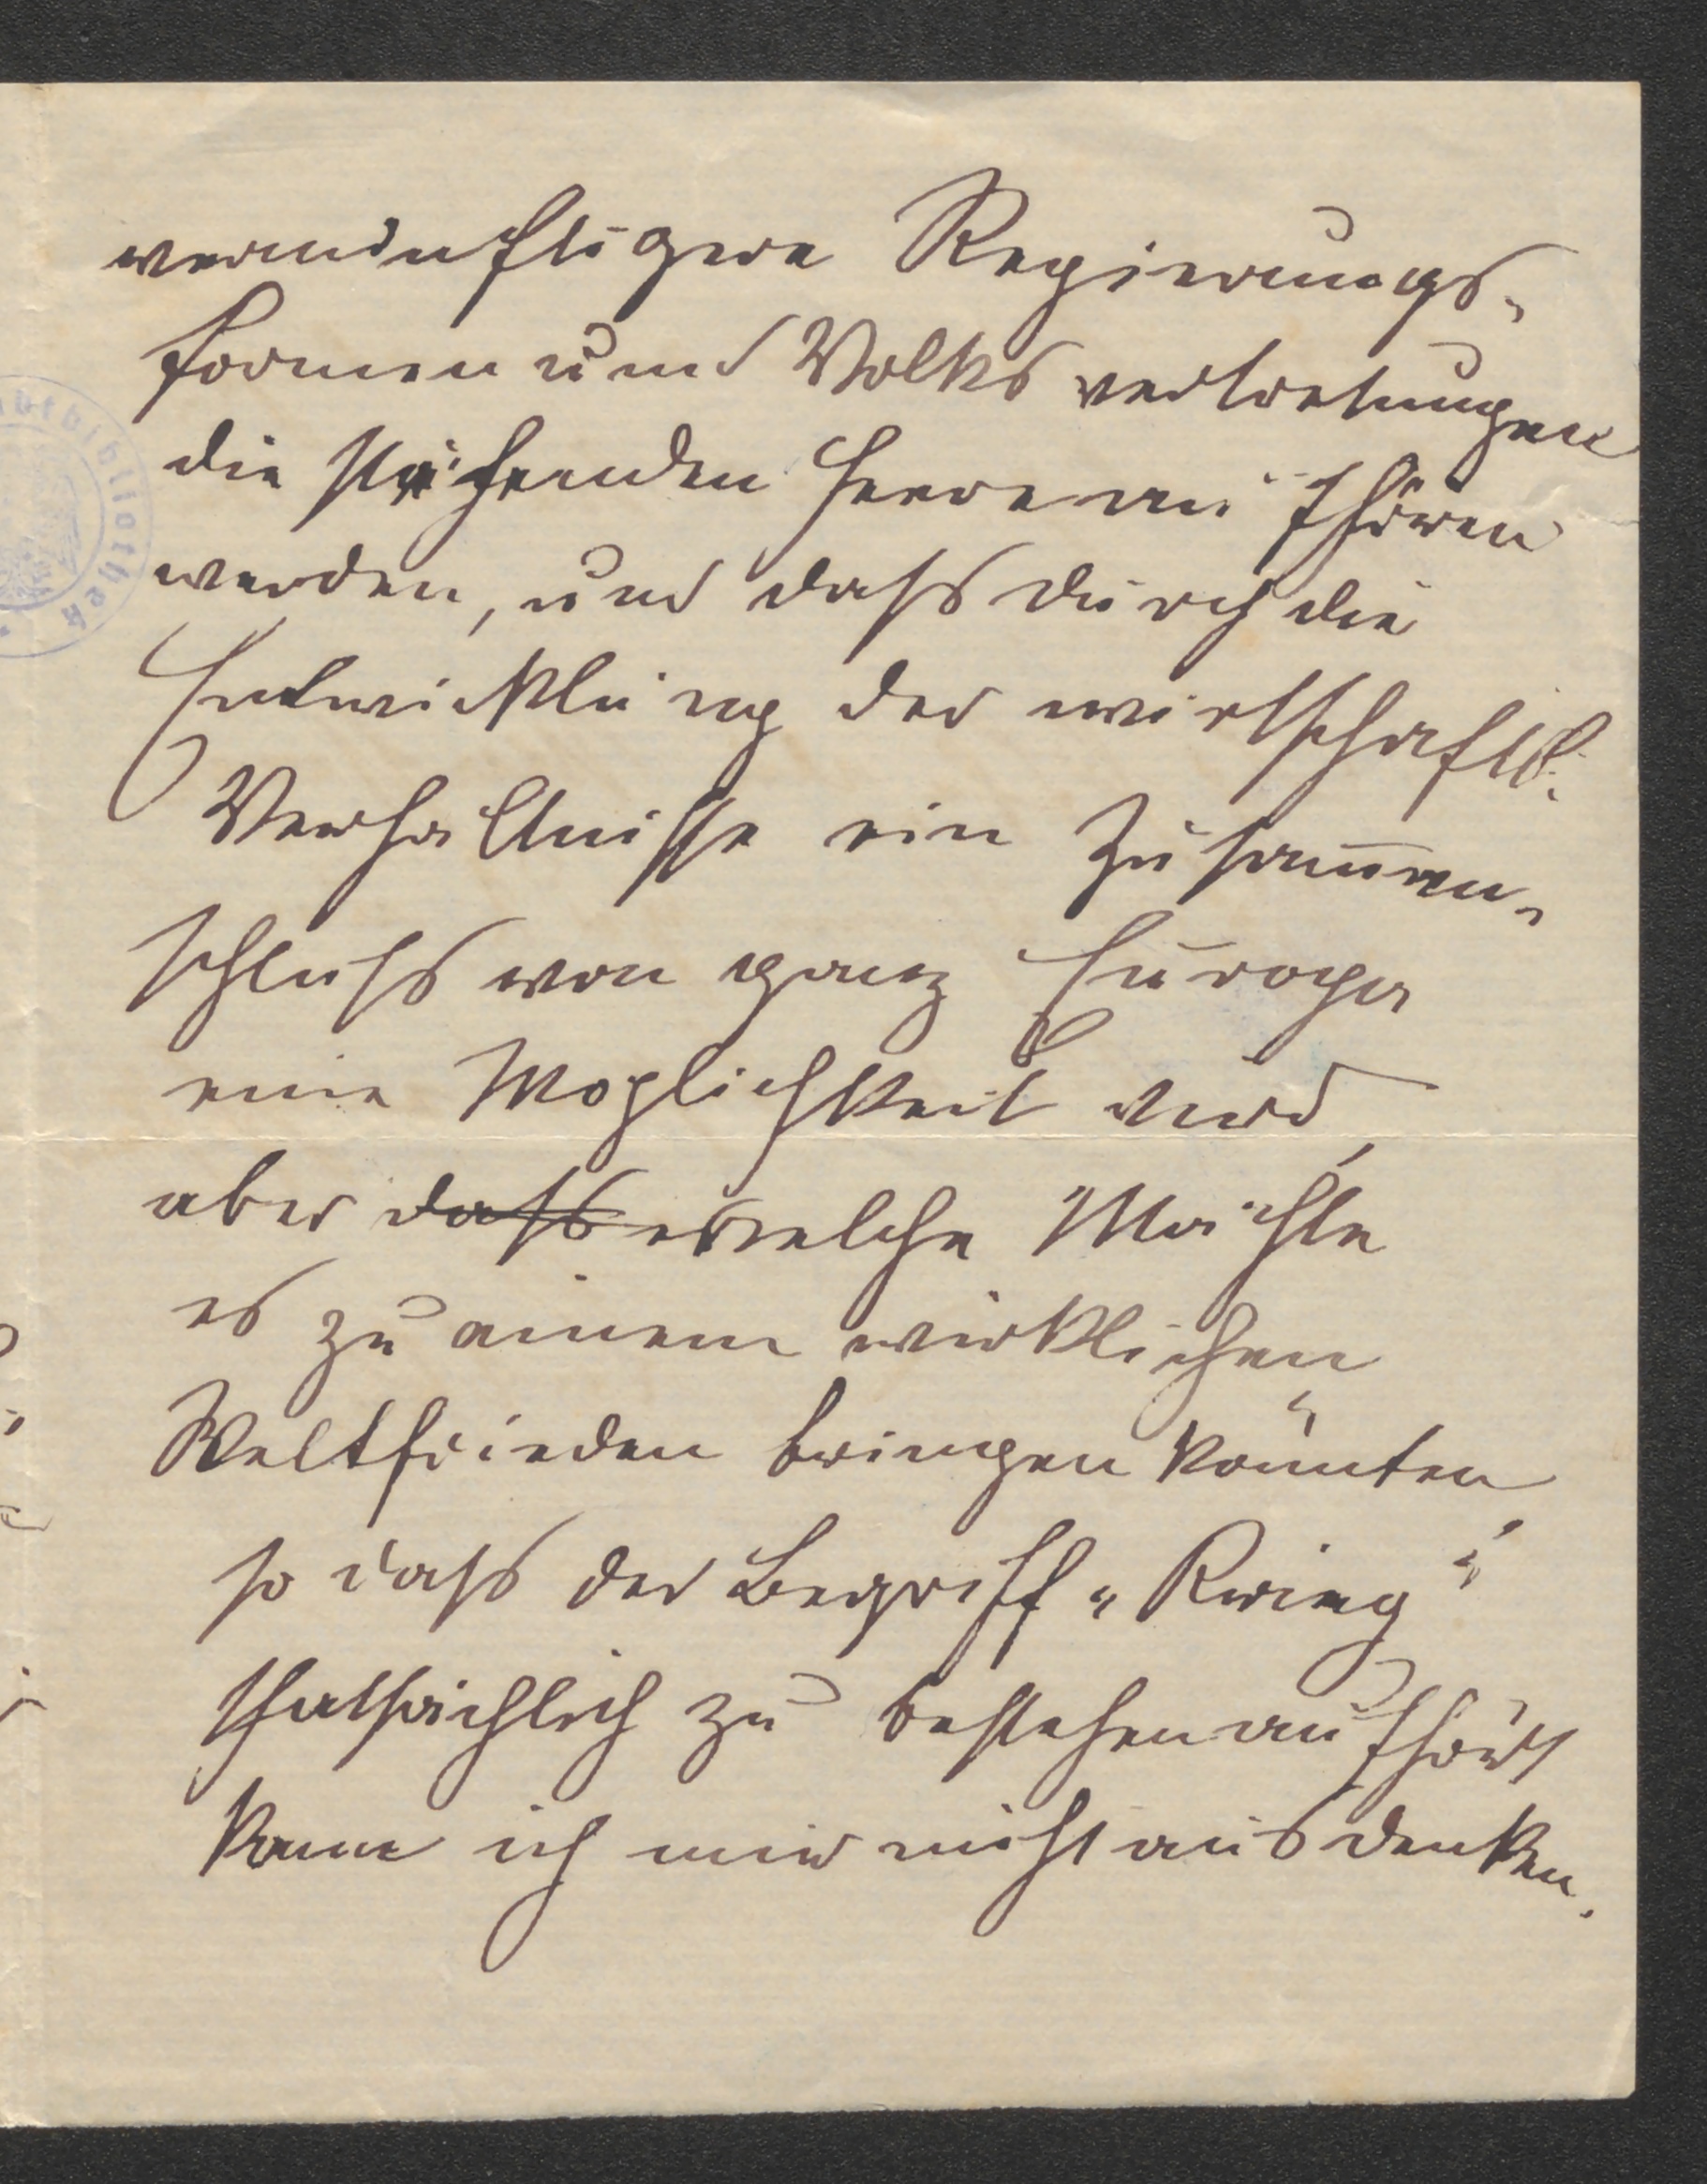 vernünftigere Regierungs-
formen und Volksvertretungen
die stehenden Heere aufhören
werden, und dass durch die
Entwicklung der wirtschaftl.
Verhältnisse ein Zusam̅en-
schluss von ganz Europa
eine Möglichkeit wird,
aber dass welche Mächte
es zu einem wirklichen
Weltfrieden bringen könnten,
so dass der Begriff „Krieg"
thatsächlich zu bestehen aufhört
kann ich mir nicht ausdenken.